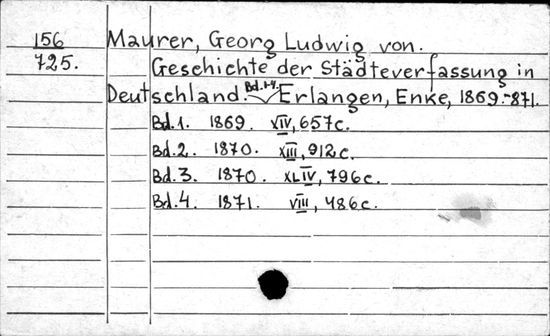 156 Maurer, Georg Ludwig von.
725. Geschichte der Städteverfassung in
Deutschland. Bd. 1-4. Erlangen, Enke, 1869.-871.
Bd. 1. 1869. XIV, 657 c.
Bd. 2. 1870. XIII, 912 c.
Bd. 3. 1870. XLIV, 796 c.
Bd. 4. 1871. VIII, 486 c.